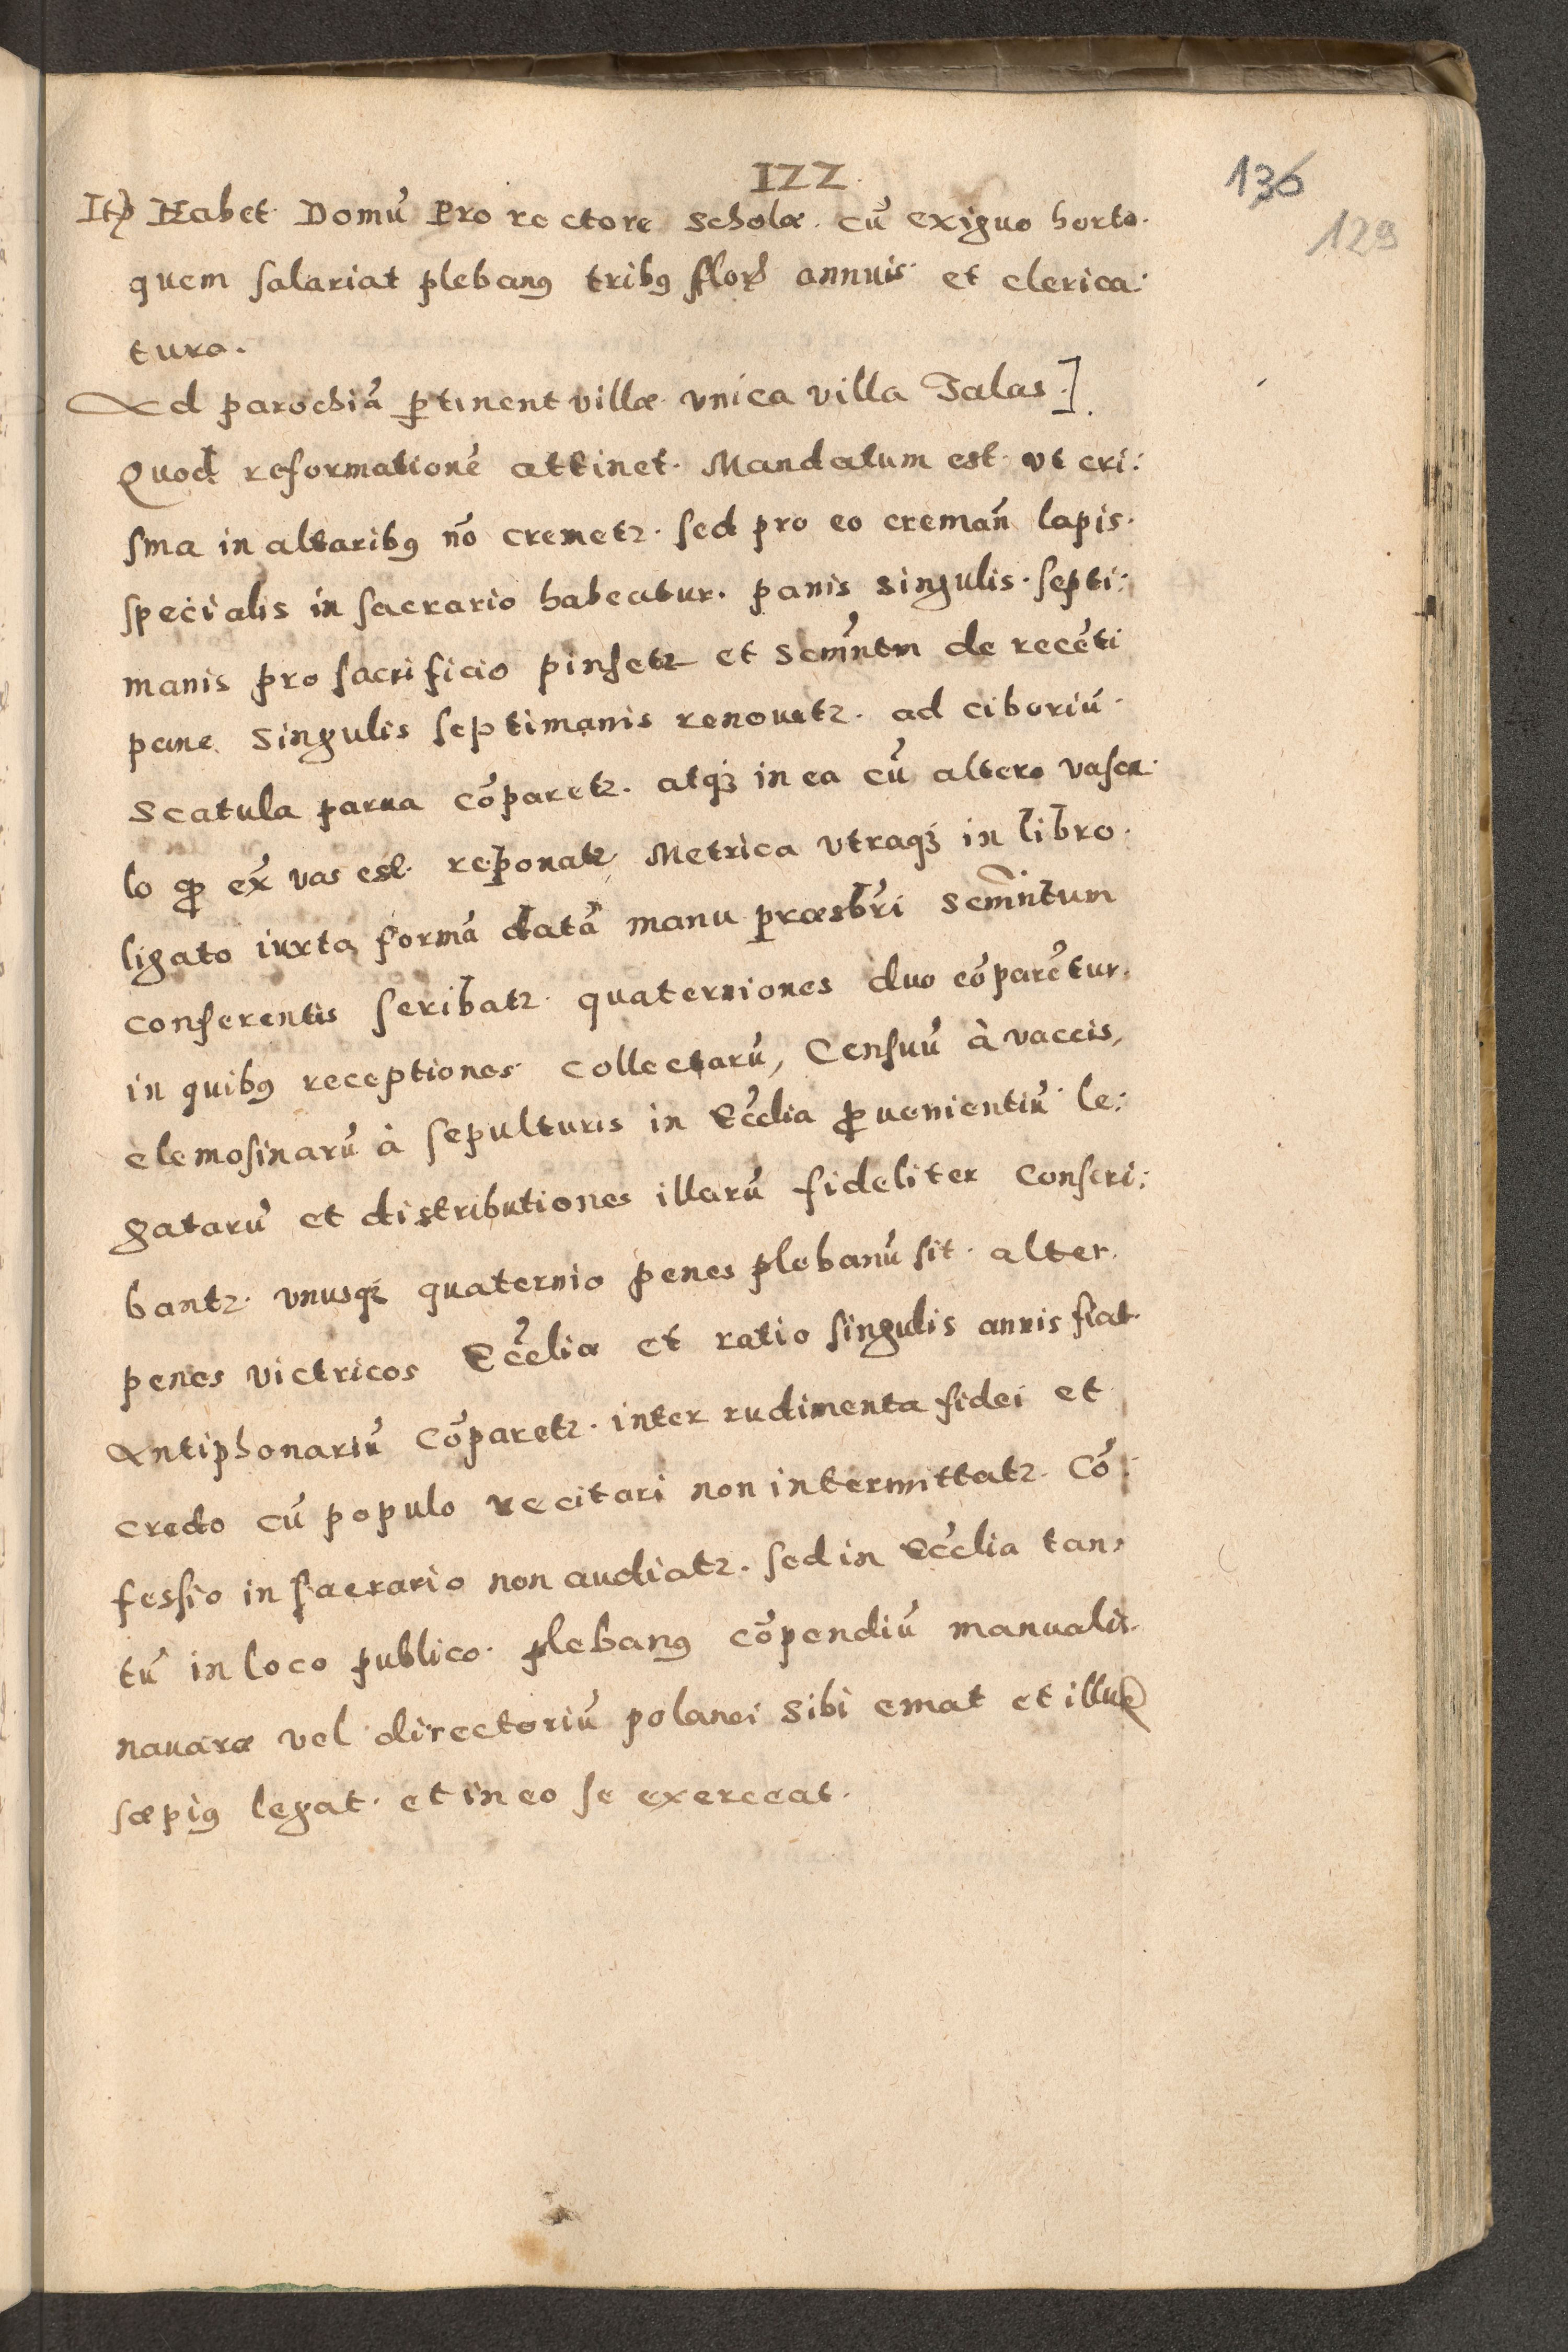 IZZ.
136
129
Itp Habet Domũ Pro rectore scholæ. cũ exiguo horto.
quem salariat plebanꝰ tribꝰ flor̃ annuis et clerica:
tura.
Ad parochiã ꝑtinent villæ vnica villa Jalas.]
Quod reformationẽ attinet. Mandatum est vt cri:
sma in altaribꝰ nõ cremetꝛ. sed pro eo cremañ lapis.
specialis in sacrario habeatur. panis singulis septi:
manis pro sacrificio pinsetꝛ et Scm̃ntm de recẽti
pane singulis septimanis renouetꝛ. ad ciboriũ.
scatula parua cõparetꝛ. atqꝫ in ea cũ altero vascu
lo ꝓ ex̃ vas est. reponatꝛ Metrica vtraqꝫ in libro.
ligato iuxta formã datã manu præsbr̃i Scm̃ntum
conferentis scribatꝛ. quaterniones duo cõparẽtur.
in quibꝰ receptiones collectarũ, Censuũ à vaccis,
elemosinarũ à sepulturis in Eccl̃ia ꝓuenientiũ le:
gatarũ et distributiones illarũ fideliter conscri:
bantꝛ. vnusqꝫ quaternio penes plebanũ sit. alter.
penes victricos Eccl̃iæ et ratio singulis annis fiat.
Antiphonariũ cõparetꝛ. inter rudimenta fidei et
credo cũ populo recitari non intermittatꝛ. Cõ:
fessio in sacrario non audiatꝛ. sed in Eccl̃ia tan:
tũ in loco publico. plebanꝰ cõpendiũ manualis
nauaræ vel directoriũ polanci sibi emat et illud
sæpiꝰ legat. et in eo se exerceat.